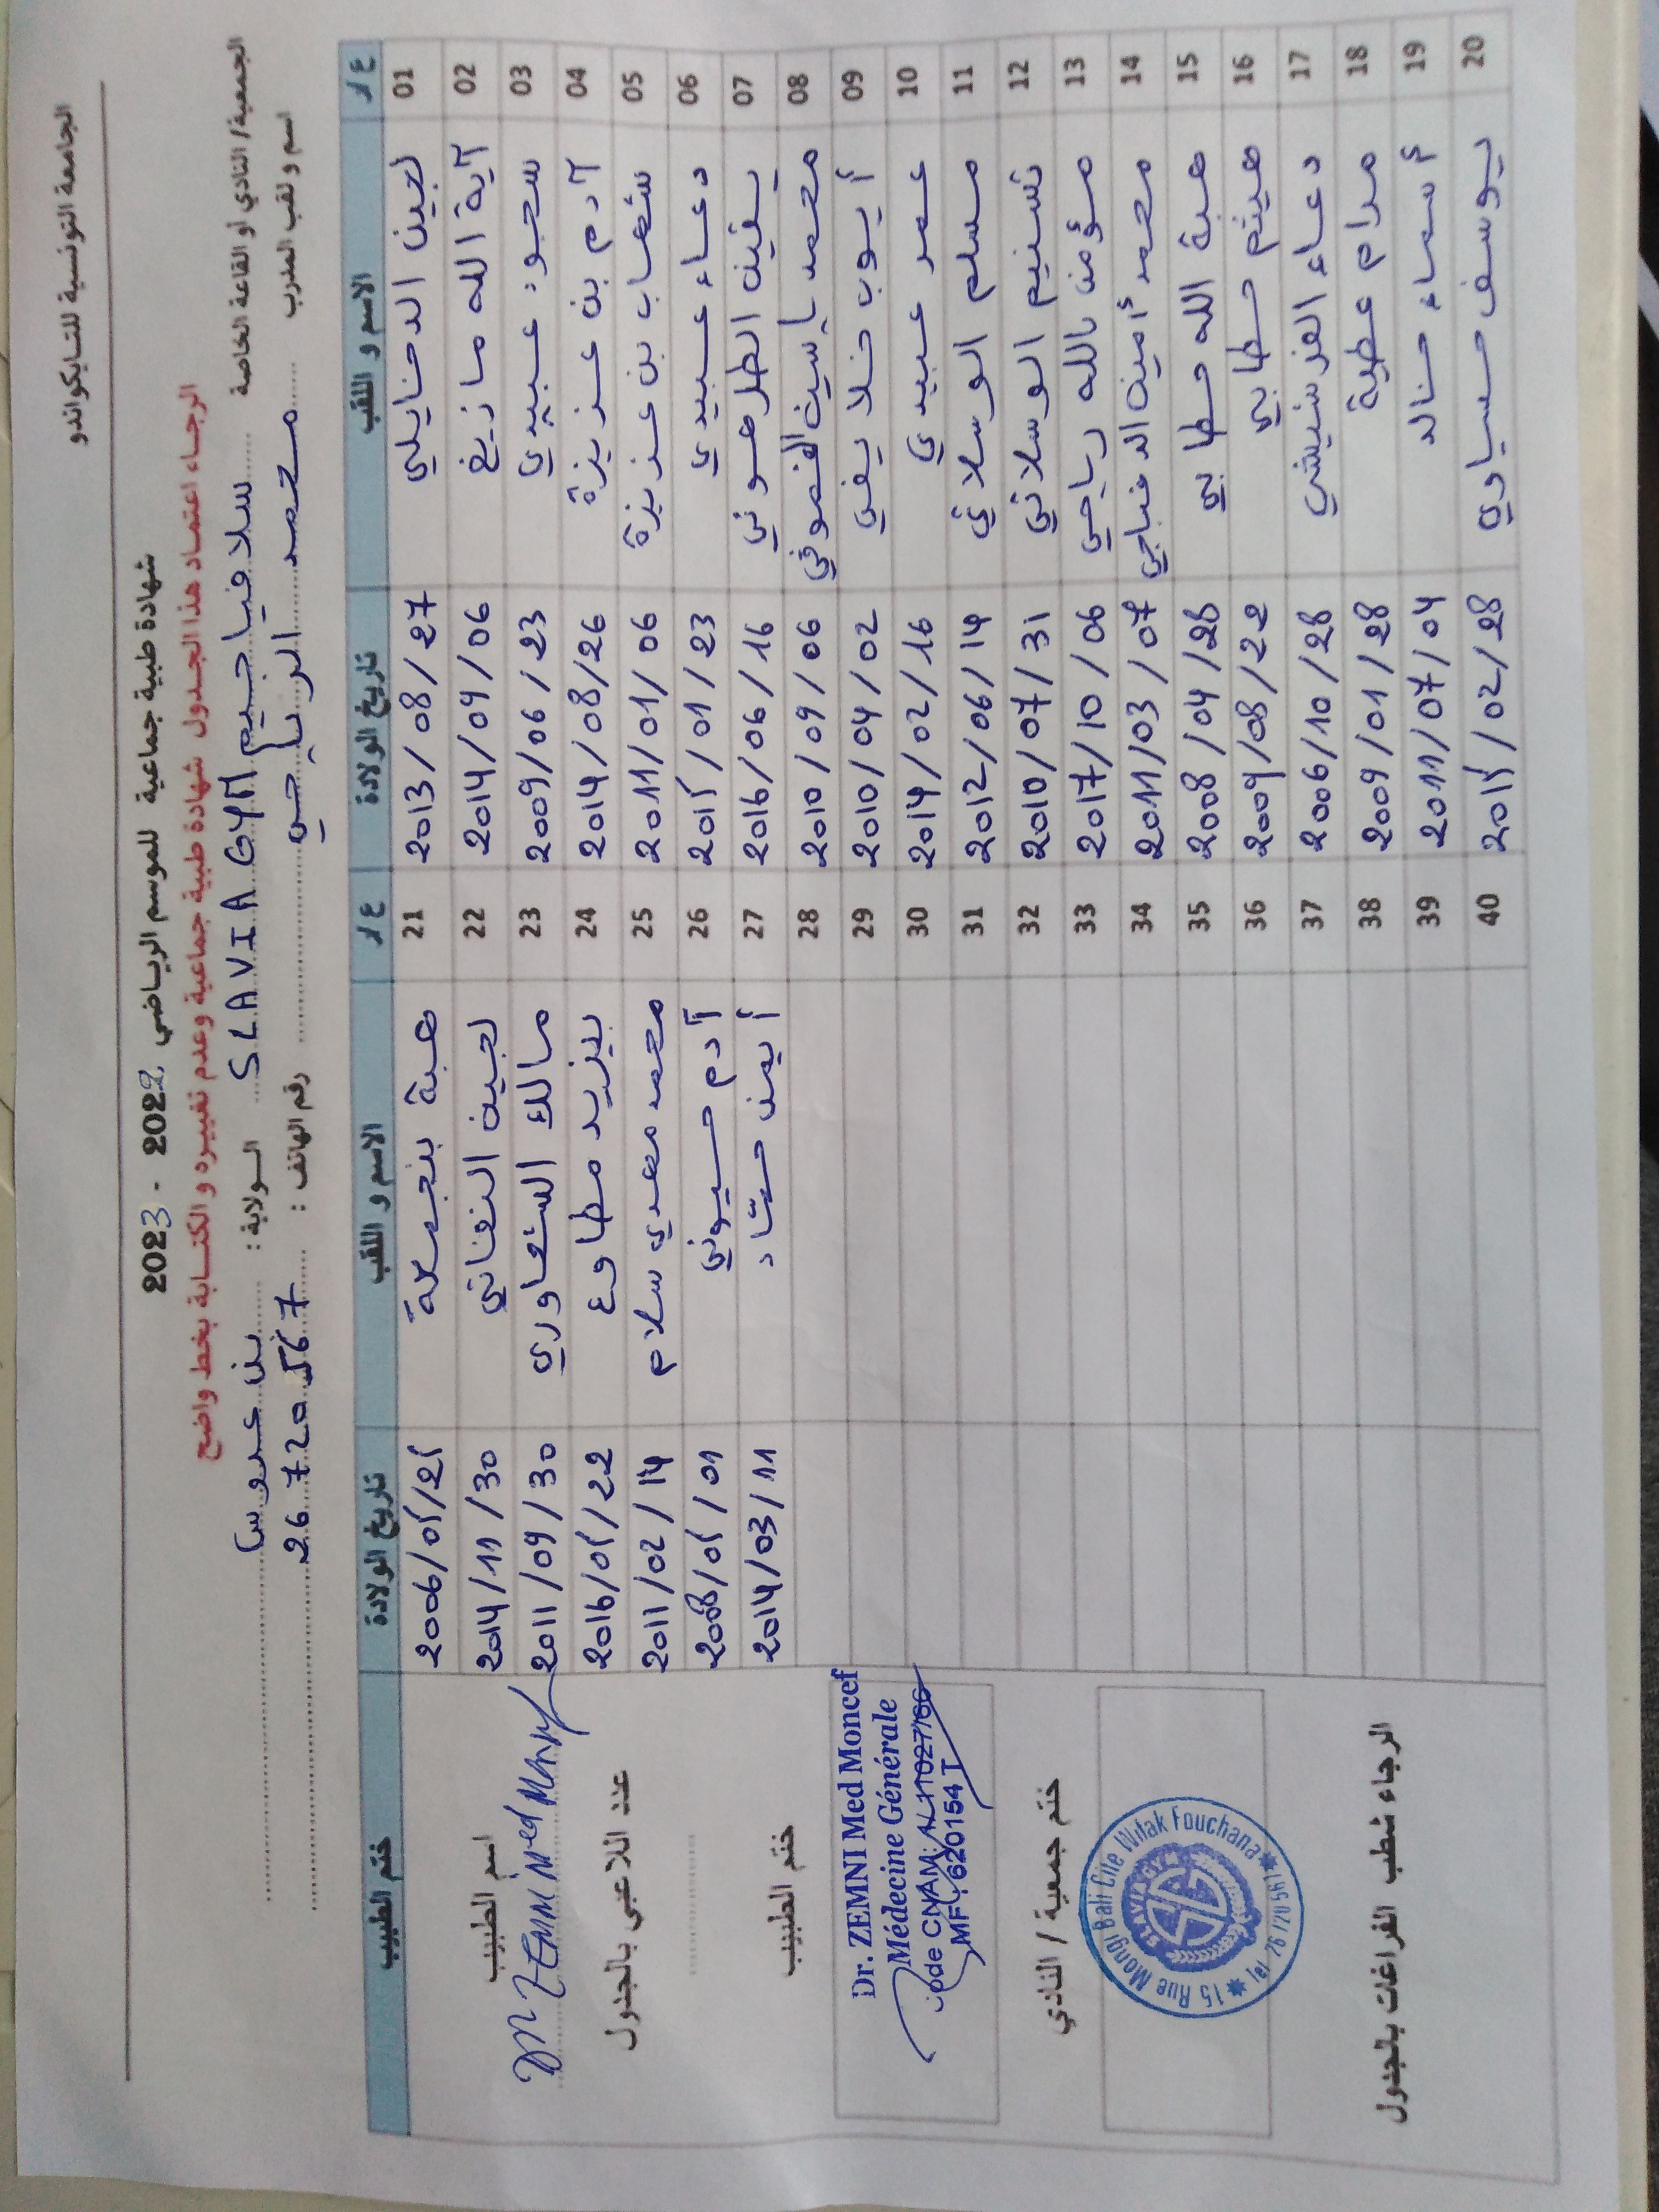 الجامعة التونسية للتايكواندو
شهادة طبية جماعية للموسم الرياضي 2022 - 2023
الرجاء اعتماد هذا الجدول شهادة طبية جماعية وعدم تغييره و الكتابة بخط واضح
الجمعية/ النادي أو القاعة الخاصة سلافيا جيم SLAVIA GYM الولاية : بن عروس
اسم و لقب المدرب محمد الرياحي رقم الهاتف : 26 720 567
ع/ر الاسم و اللقب تاريخ الولادة ع/ر الاسم و اللقب تاريخ الولادة ختم الطبيب
01 لجين الدخايلي 2013/08/27 21 هبة بنجمعة 2006/05/25
02 آية الله مازيغ 2014/09/06 22 لجين النفاتي 2014/11/30
03 سجود عبيدي 2009/06/23 23 مالك السعاوري 2011/09/30
04 آدم بن عزيزة 2014/08/26 24 يزيد مطاوع 2016/05/22
05 شهاب بن عزيزة 2011/01/06 25 محمد مهدي سلام 2011/02/14
06 دعاء عبيدي 2015/01/23 26 آدم حسيوني 2008/05/01
07 يقين الطرهوني 2016/06/16 27 أيمن حشاد 2014/03/11
08 محمد ياسين 2010/09/06 28
09 أيوب خلايفي 2010/04/02 29
10 عمر عبيدي 2014/02/16 30
11 مسلم الوسلاتي 2012/06/14 31
12 تسنيم الوسلاتي 2010/07/31 32
13 مؤمن بالله رياحي 2017/10/06 33
14 محمد أمين 2011/03/07 34
15 هبة الله حطابي 2008/04/28 35
16 هيثم حطابي 2009/08/22 36
17 دعاء الفرشيشي 2006/10/28 37
18 مرام عطية 2009/01/28 38
19 أسماء خالد 2011/07/04 39
20 يوسف حسيادي 2015/02/28 40
اسم الطبيب
Dr Zemni Med Moncef
عدد اللاعبي بالجدول
ختم الطبيب
Dr. ZEMNI Med Moncef
Médecine Générale
Code CNAM: 
MF: 620154 T
ختم جمعية / النادي
15 Rue Mongi Bali Cite Wifak Fouchana
Tel 26 720 567
الرجاء شطب الفراغات بالجدول